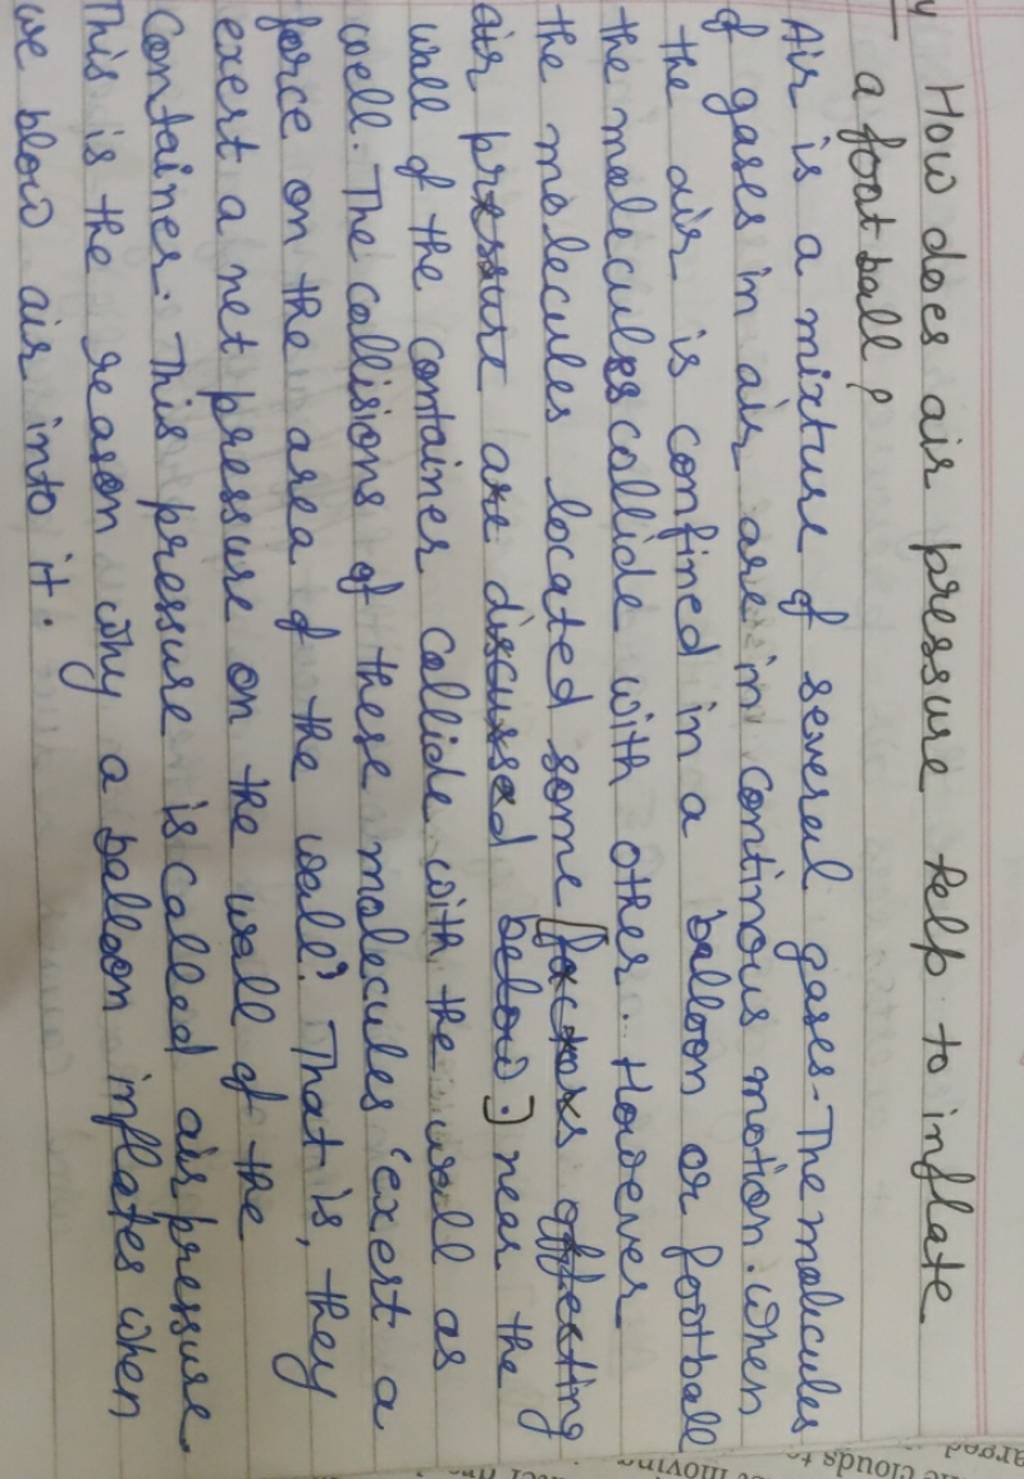 How does air pressure help to inflate
a football?
Air is a mixture of several gases. The molecules
of gases in air are in continous motion. When
the air is confined in a balloon or football
the molecules collide with other. However
the molecules located some [factors affecting
air pressure are discussed below.] near the
wall of the container collide with the wall as
well. The collisions of these molecules 'exert a
force on the area of the wall'. That is, they
exert a net pressure on the wall of the
Container. This pressure is called air pressure.
This is the reason why a balloon inflates when
we blow air into it.